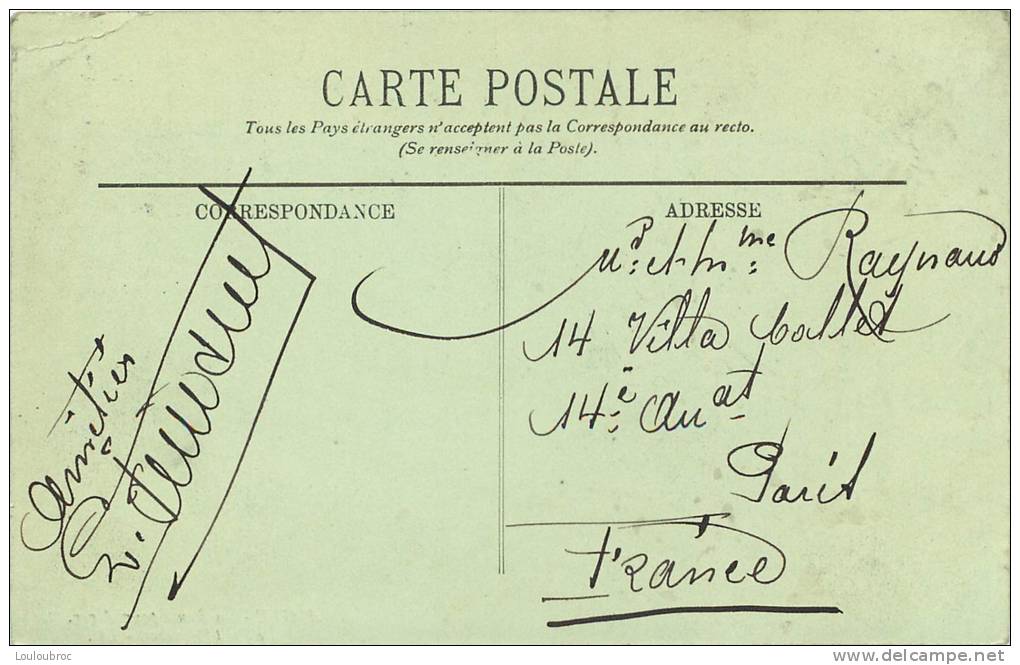 CARTE POSTALE
Tous les Pays étrangers n'acceptent pas la Correspondance au recto.
(Se renseigner à la Poste).
CORRESPONDANCE
Amitiés
ADRESSE
Mr. et Mme. Raynaud
14 Villa Collet
14e. Arrat
Paris
France
Louloubroc
www.delcampe.net